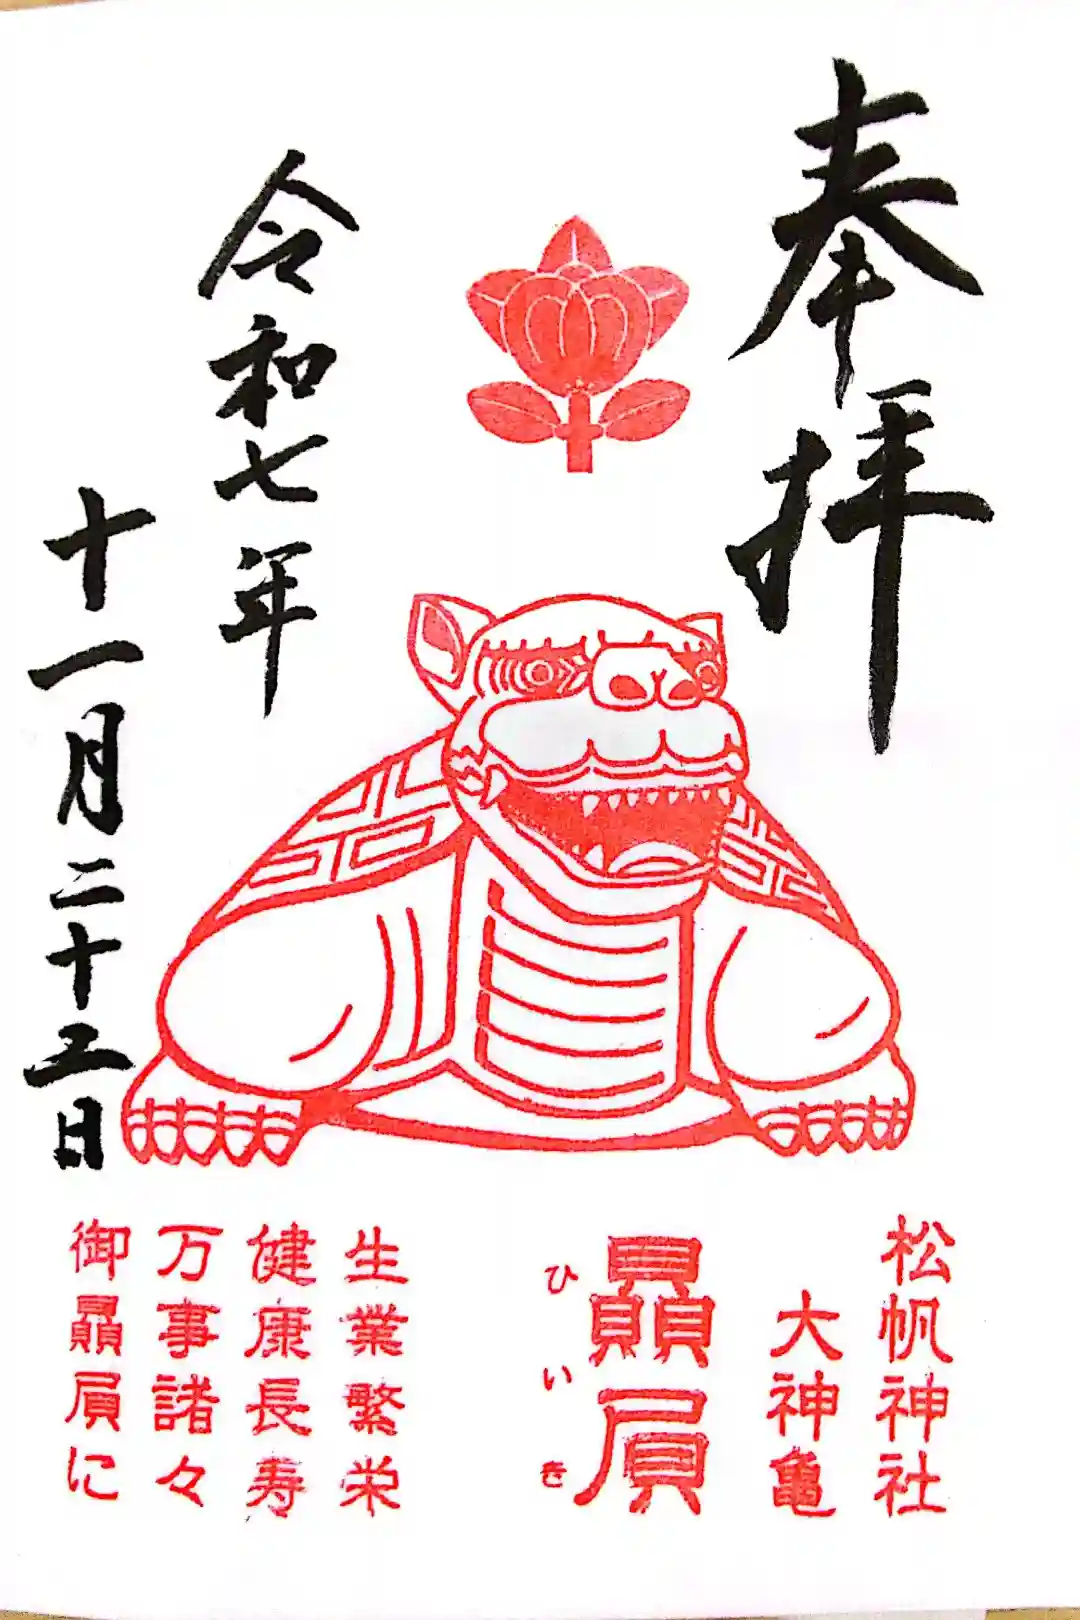 奉拝
令和七年
十一月二十三日
松帆神社
大神亀
贔屓
ひいき
生業繁栄
健康長寿
万事諸々
御贔屓に